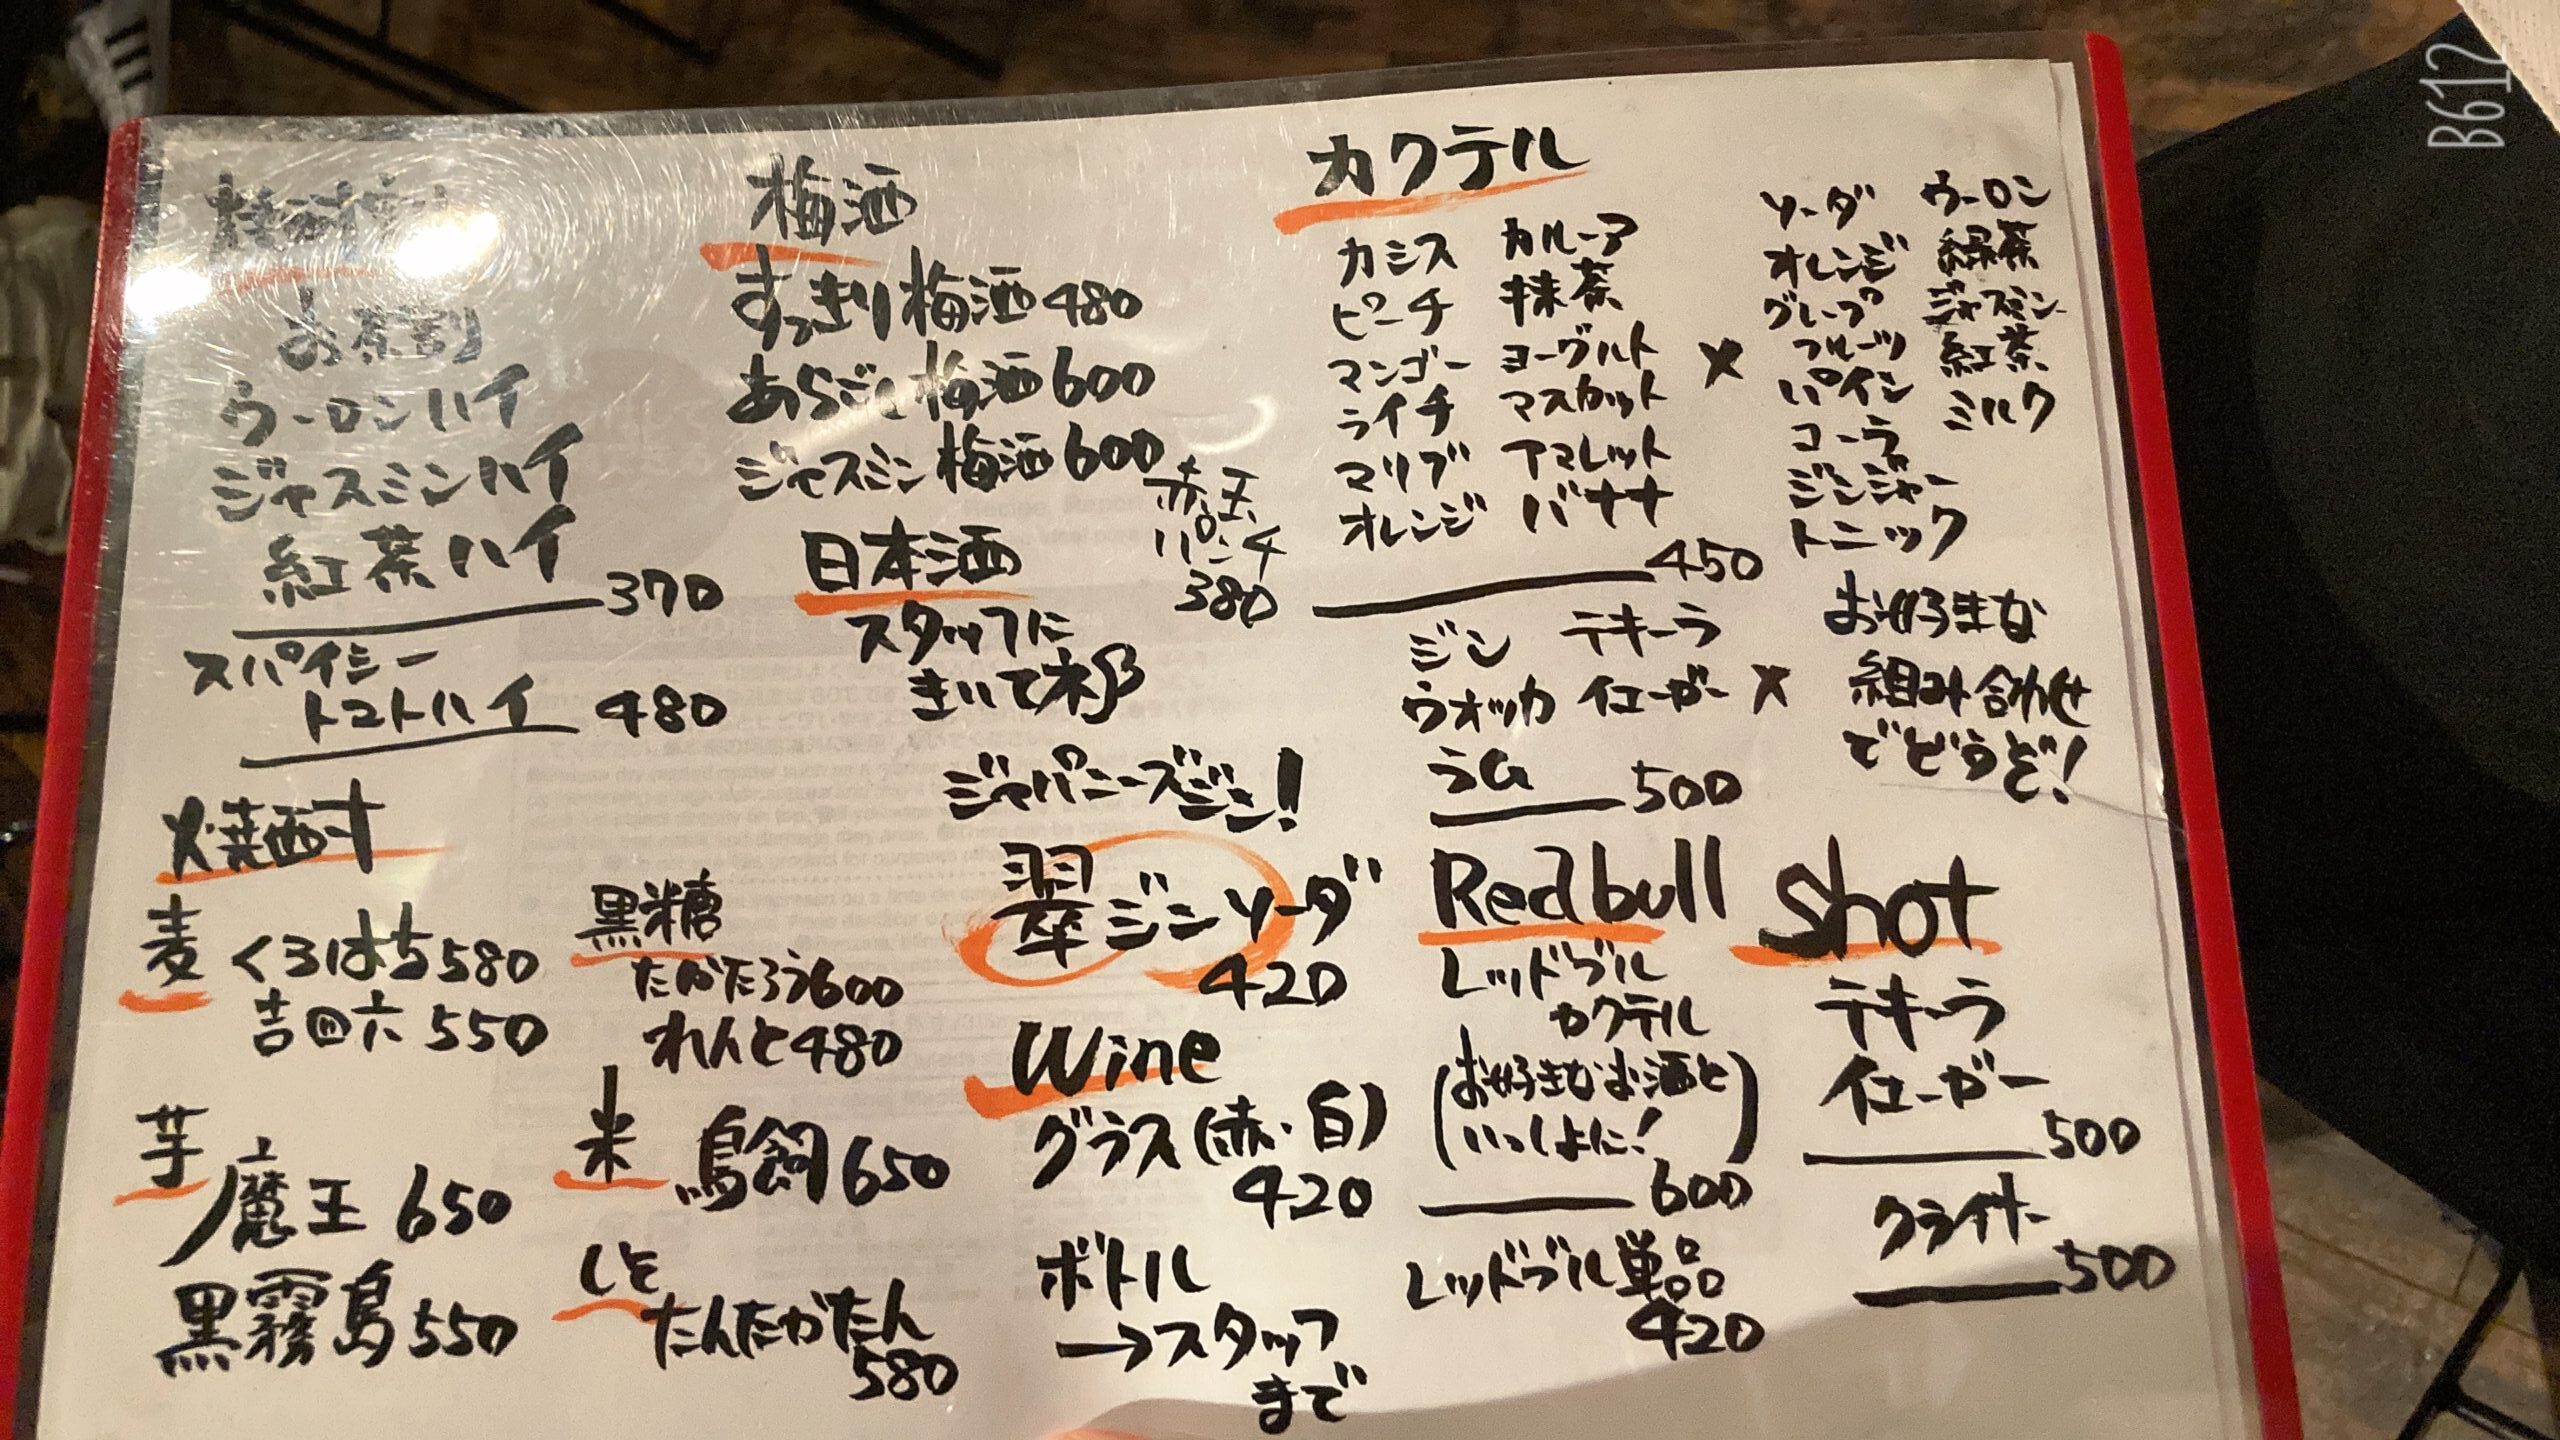 お茶割
ウーロンハイ
ジャスミンハイ
紅茶ハイ
370
スパイシー
トマトハイ 480
焼酎
麦
くろはち 580
吉四六 550
芋
魔王 650
黒霧島 550
黒糖
たかたろう 600
れんと 480
米
鳥飼 650
しそ
たんたかたん
580
梅酒
すっきり梅酒 480
あらごし梅酒 600
ジャスミン梅酒 600
赤玉
パンチ
380
日本酒
スタッフに
きいてネ
ジャパニーズジン!
翠ジンソーダ
420
Wine
グラス(赤・白)
420
ボトル
→スタッフ
まで
カクテル
カシス カルーア
ピーチ 抹茶
マンゴー ヨーグルト
ライチ マスカット
マリブ アマレット
オレンジ バナナ
450
×
ソーダ ウーロン
オレンジ 緑茶
グレープ ジャスミン
フルーツ 紅茶
パイン ミルク
コーラ
ジンジャー
トニック
ジン テキーラ
ウオッカ イェーガー
ラム 500
×
お好きな
組み合わせ
でどうぞ!
Redbull
レッドブル
カクテル
(お好きなお酒と
いっしょに!)
600
レッドブル単品
420
shot
テキーラ
イェーガー
500
クライナー
500
B612